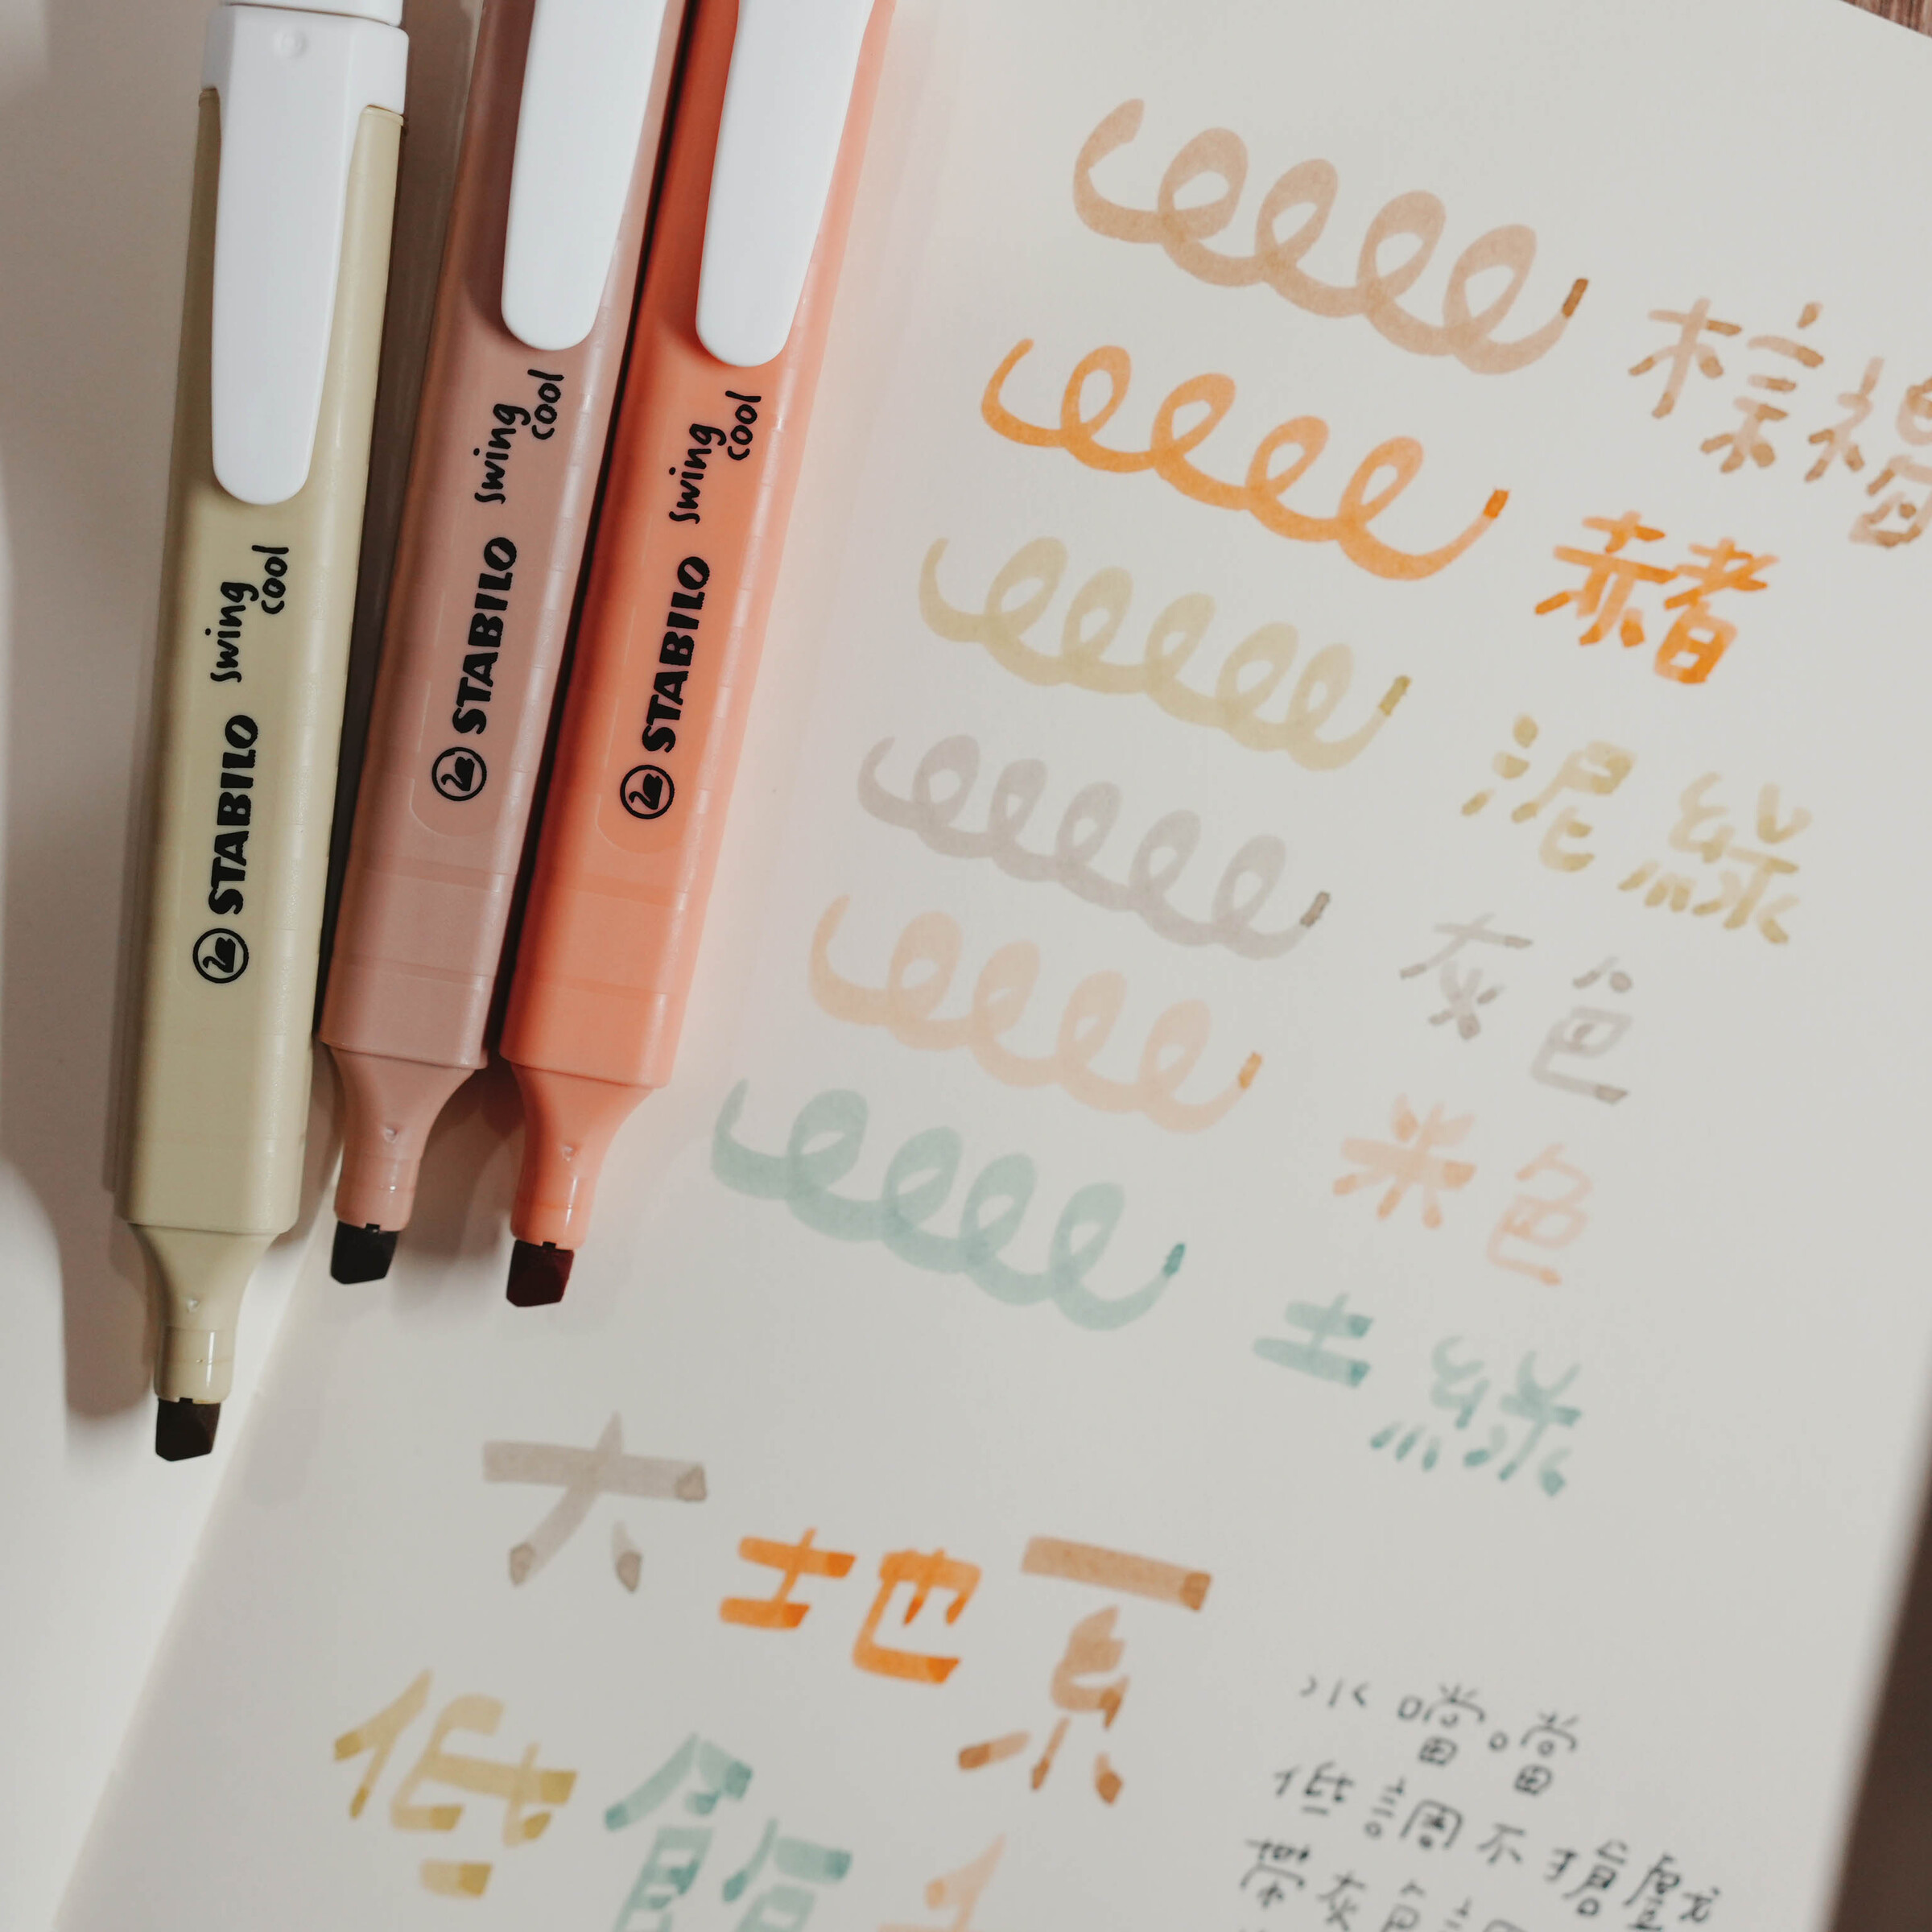 STABILO swing cool
STABILO swing cool
STABILO swing cool
棕褐
赭
泥綠
灰色
米色
土綠
大地系
低飽
水噹噹
低調不搶戲
帶灰色